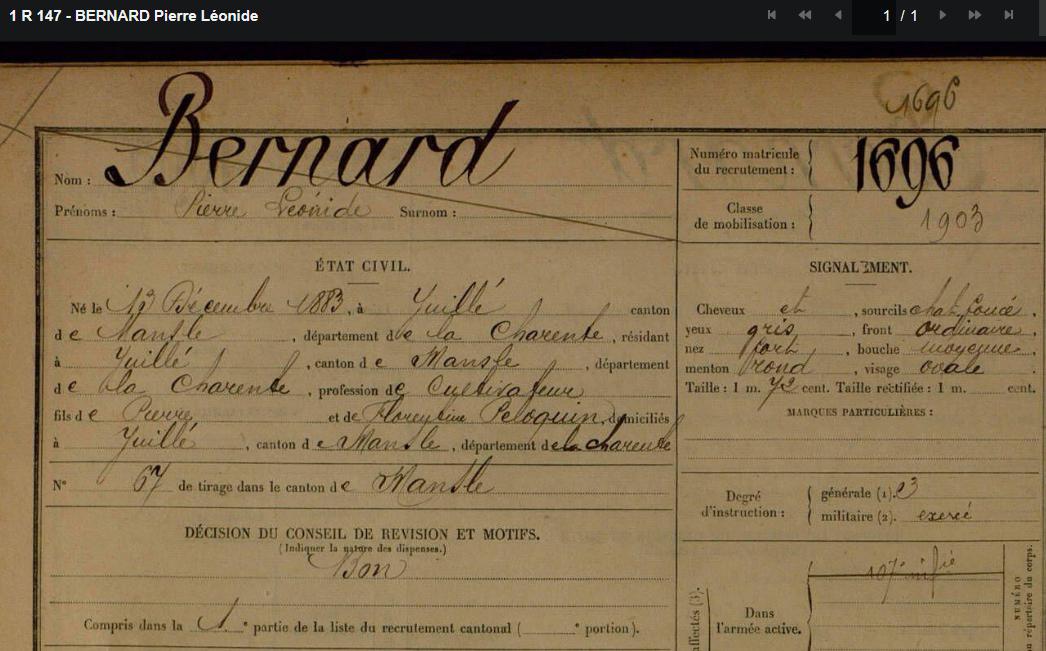 1 R 147 - BERNARD Pierre Léonide
1 / 1
1696
Bernard
Nom :
Prénoms : Pierre Léonide Surnom :
Numéro matricule du recrutement : 1696
Classe de mobilisation : 1903
ÉTAT CIVIL.
Né le 13 Décembre 1883, à Juillé canton
de Mansle, département de la Charente, résidant
à Juillé, canton de Mansle, département
de la Charente, profession de Cultivateur
fils de Pierre et de Florentine Peloquin, domiciliés
à Juillé, canton de Mansle, département de la Charente
N° 67 de tirage dans le canton de Mansle
DÉCISION DU CONSEIL DE REVISION ET MOTIFS.
(Indiquer la nature des dispenses.)
Bon
Compris dans la 1e partie de la liste du recrutement cantonal ( e portion).
SIGNALEMENT.
Cheveux et, sourcils chat. foncé,
yeux gris, front ordinaire,
nez fort, bouche moyenne,
menton rond, visage ovale.
Taille : 1 m. 72 cent. Taille rectifiée : 1 m. cent.
MARQUES PARTICULIÈRES :
Degré d'instruction :
générale (1). 3
militaire (2). exercé
Dans l'armée active.
107e
NUMÉRO
au répertoire du corps.